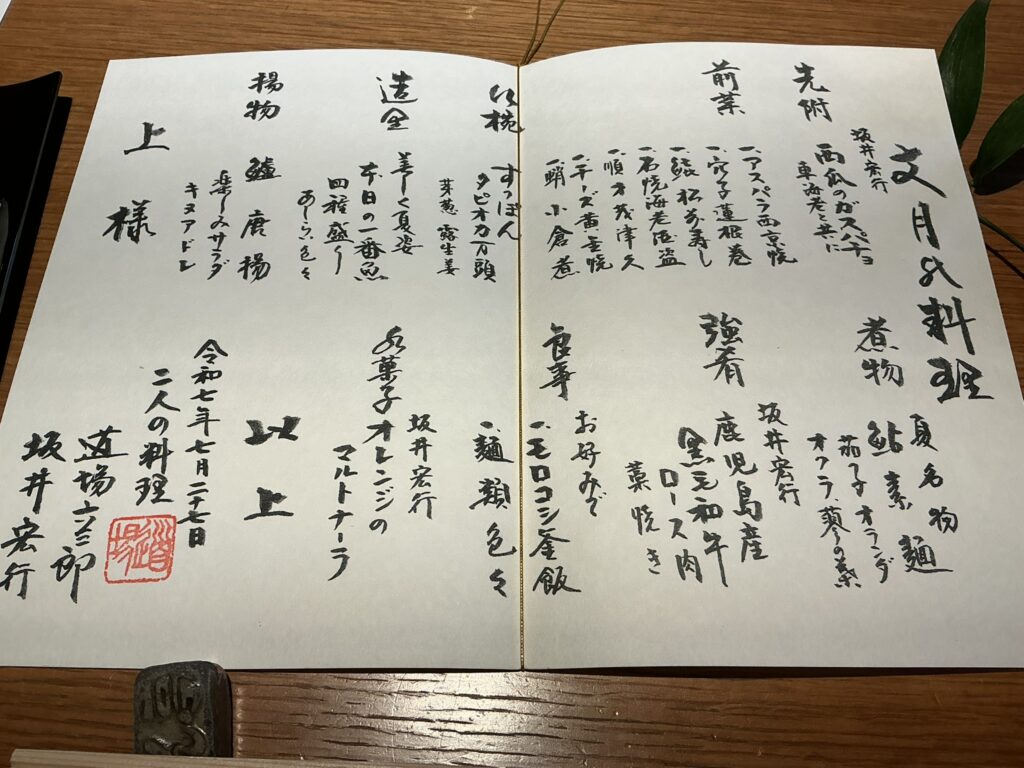 文月の料理
先附
坂井宏行
西瓜のガスパチョ
車海老と共に
前菜
一、アスパラ西京焼
一、穴子蓮根巻
一、鮫松前寿し
一、石焼海老酒盗
一、順才茂津久
一、チーズ黄金焼
一、蛸小倉煮
椀
すっぽん
タピオカ万頭
芽葱 露生姜
造里
美しく夏姿
本日の一番魚
四種盛り
あしらい色々
揚物
鱧唐揚
楽しみサラダ
キヌアドレ
上様
煮物
夏名物
鮎素麺
茄子オランダ
オクラ、蓼の葉
強肴
坂井宏行
鹿児島産
黒毛和牛
ロース肉
藁焼き
食事
お好みで
一、モロコシ釜飯
一、麺類色々
水菓子
坂井宏行
オレンジの
マルトナーラ
以上
令和七年七月二十七日
二人の料理
道場六三郎
坂井宏行
道場